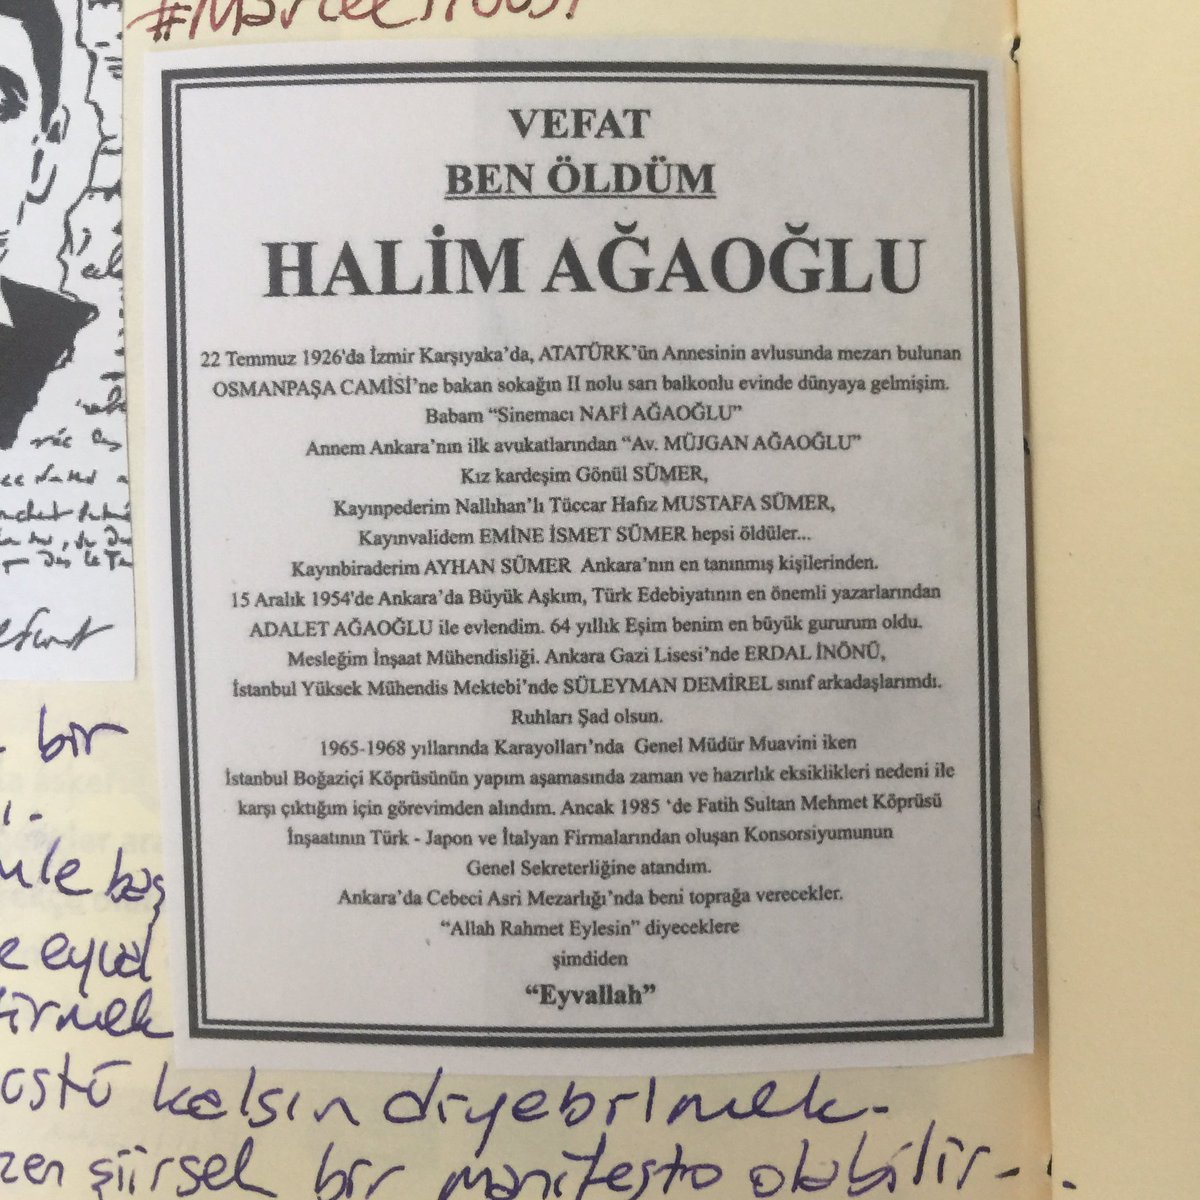 #MarcelProust
VEFAT
BEN ÖLDÜM
HALİM AĞAOĞLU
22 Temmuz 1926'da İzmir Karşıyaka'da, ATATÜRK'ün Annesinin avlusunda mezarı bulunan
OSMANPAŞA CAMİSİ'ne bakan sokağın II nolu sarı balkonlu evinde dünyaya gelmişim.
Babam “Sinemacı NAFİ AĞAOĞLU”
Annem Ankara'nın ilk avukatlarından “Av. MÜJGAN AĞAOĞLU”
Kız kardeşim Gönül SÜMER,
Kayınpederim Nallıhan'lı Tüccar Hafız MUSTAFA SÜMER,
Kayınvalidem EMİNE İSMET SÜMER hepsi öldüler...
Kayınbiraderim AYHAN SÜMER Ankara'nın en tanınmış kişilerinden.
15 Aralık 1954'de Ankara'da Büyük Aşkım, Türk Edebiyatının en önemli yazarlarından
ADALET AĞAOĞLU ile evlendim. 64 yıllık Eşim benim en büyük gururum oldu.
Mesleğim İnşaat Mühendisliği. Ankara Gazi Lisesi'nde ERDAL İNÖNÜ,
İstanbul Yüksek Mühendis Mektebi'nde SÜLEYMAN DEMİREL sınıf arkadaşlarımdı.
Ruhları Şad olsun.
1965-1968 yıllarında Karayolları'nda Genel Müdür Muavini iken
İstanbul Boğaziçi Köprüsünün yapım aşamasında zaman ve hazırlık eksiklikleri nedeni ile
karşı çıktığım için görevimden alındım. Ancak 1985 ‘de Fatih Sultan Mehmet Köprüsü
İnşaatının Türk - Japon ve İtalyan Firmalarından oluşan Konsorsiyumunun
Genel Sekreterliğine atandım.
Ankara'da Cebeci Asri Mezarlığı'nda beni toprağa verecekler.
“Allah Rahmet Eylesin” diyeceklere
şimdiden
“Eyvallah”
bir
eylül
üstü kalsın diyebilmek-
şiirsel bir manifesto olabilir-..